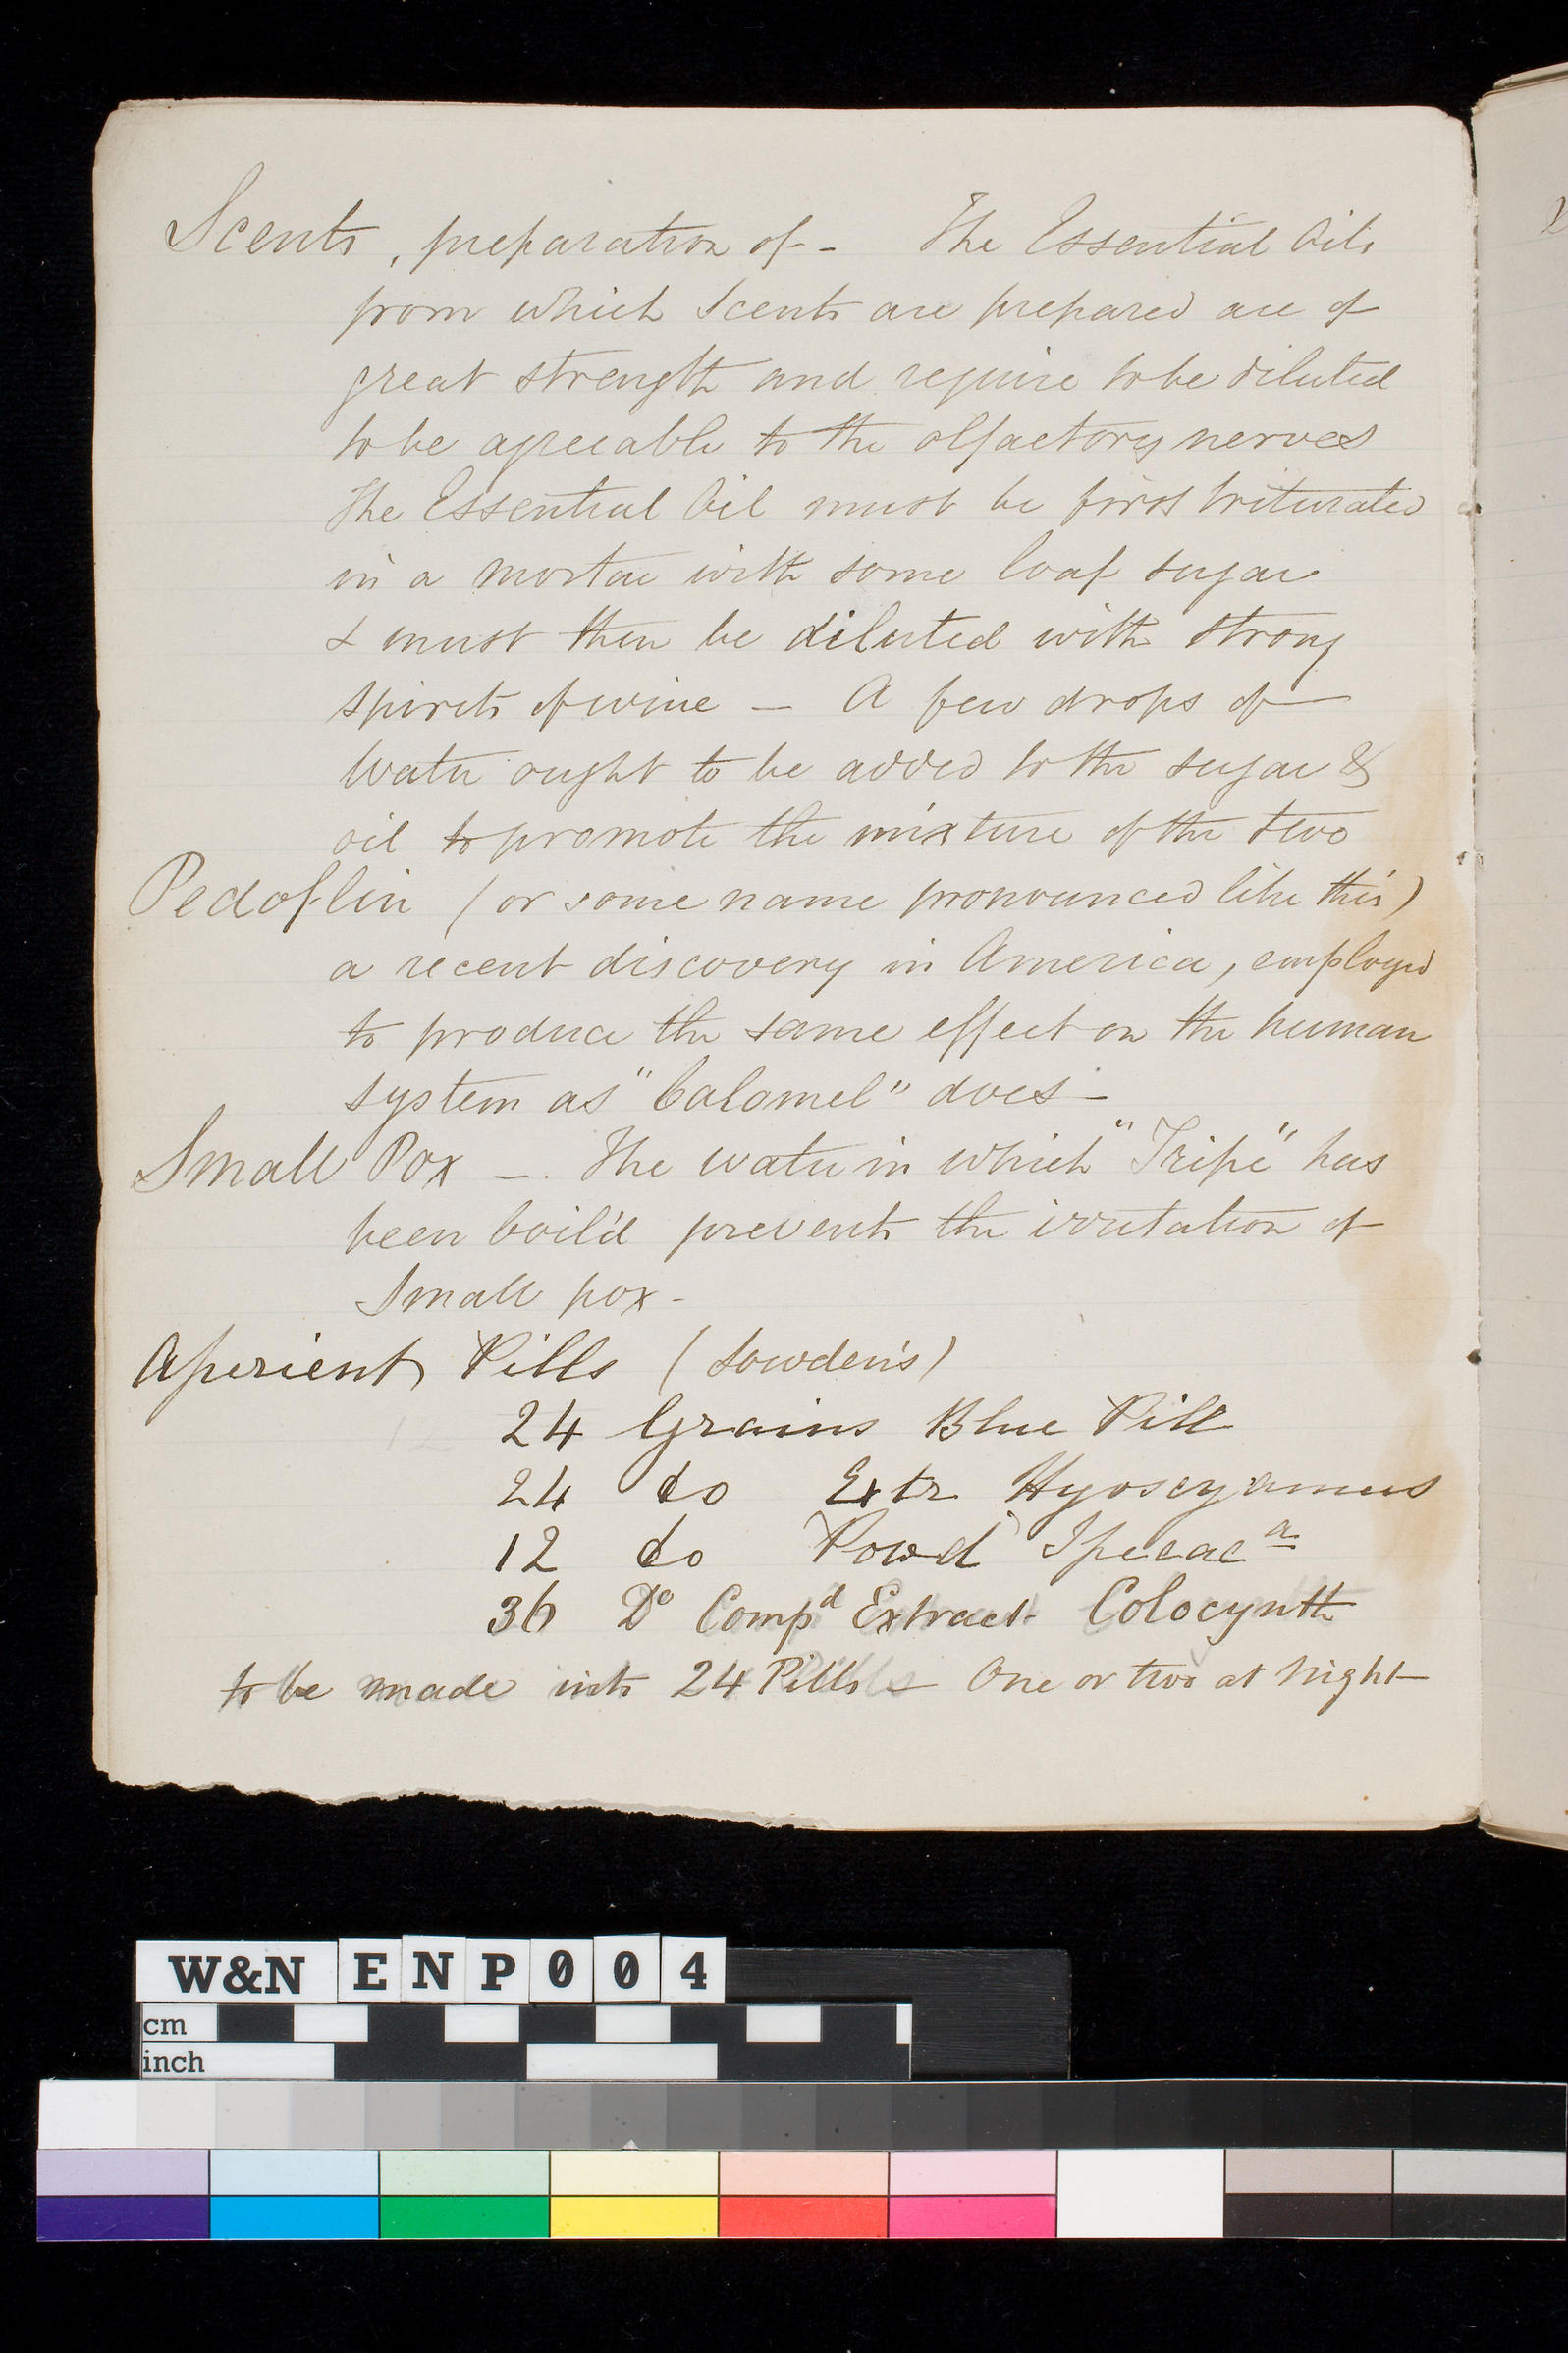 Scents, preparation of - The Essential Oils
from which Scents are prepared are of
great strength and require to be diluted
to be agreeable to the olfactory nerves
The Essential Oil must be first triturated
in a mortar with some loaf sugar
& must then be diluted with strong
spirits of wine - A few drops of
Water ought to be added to the sugar &
oil to promote the mixture of the two
Pedoflin (or some name pronounced like this)
a recent discovery in America, employed
to produce the same effect on the human
system as "Calomel" does -
Small Pox -. The water in which "Tripe" has
been boil'd prevents the irritation of
Small pox -
Aperient Pills (Lowden's)
24 Grains Blue Pill
24 do Extr Hyoscyamus
12 do Powd Ipecac a
36 Do Compd Extract Colocynth
to be made into 24 Pills - One or two at night
W&N ENP004
cm
inch